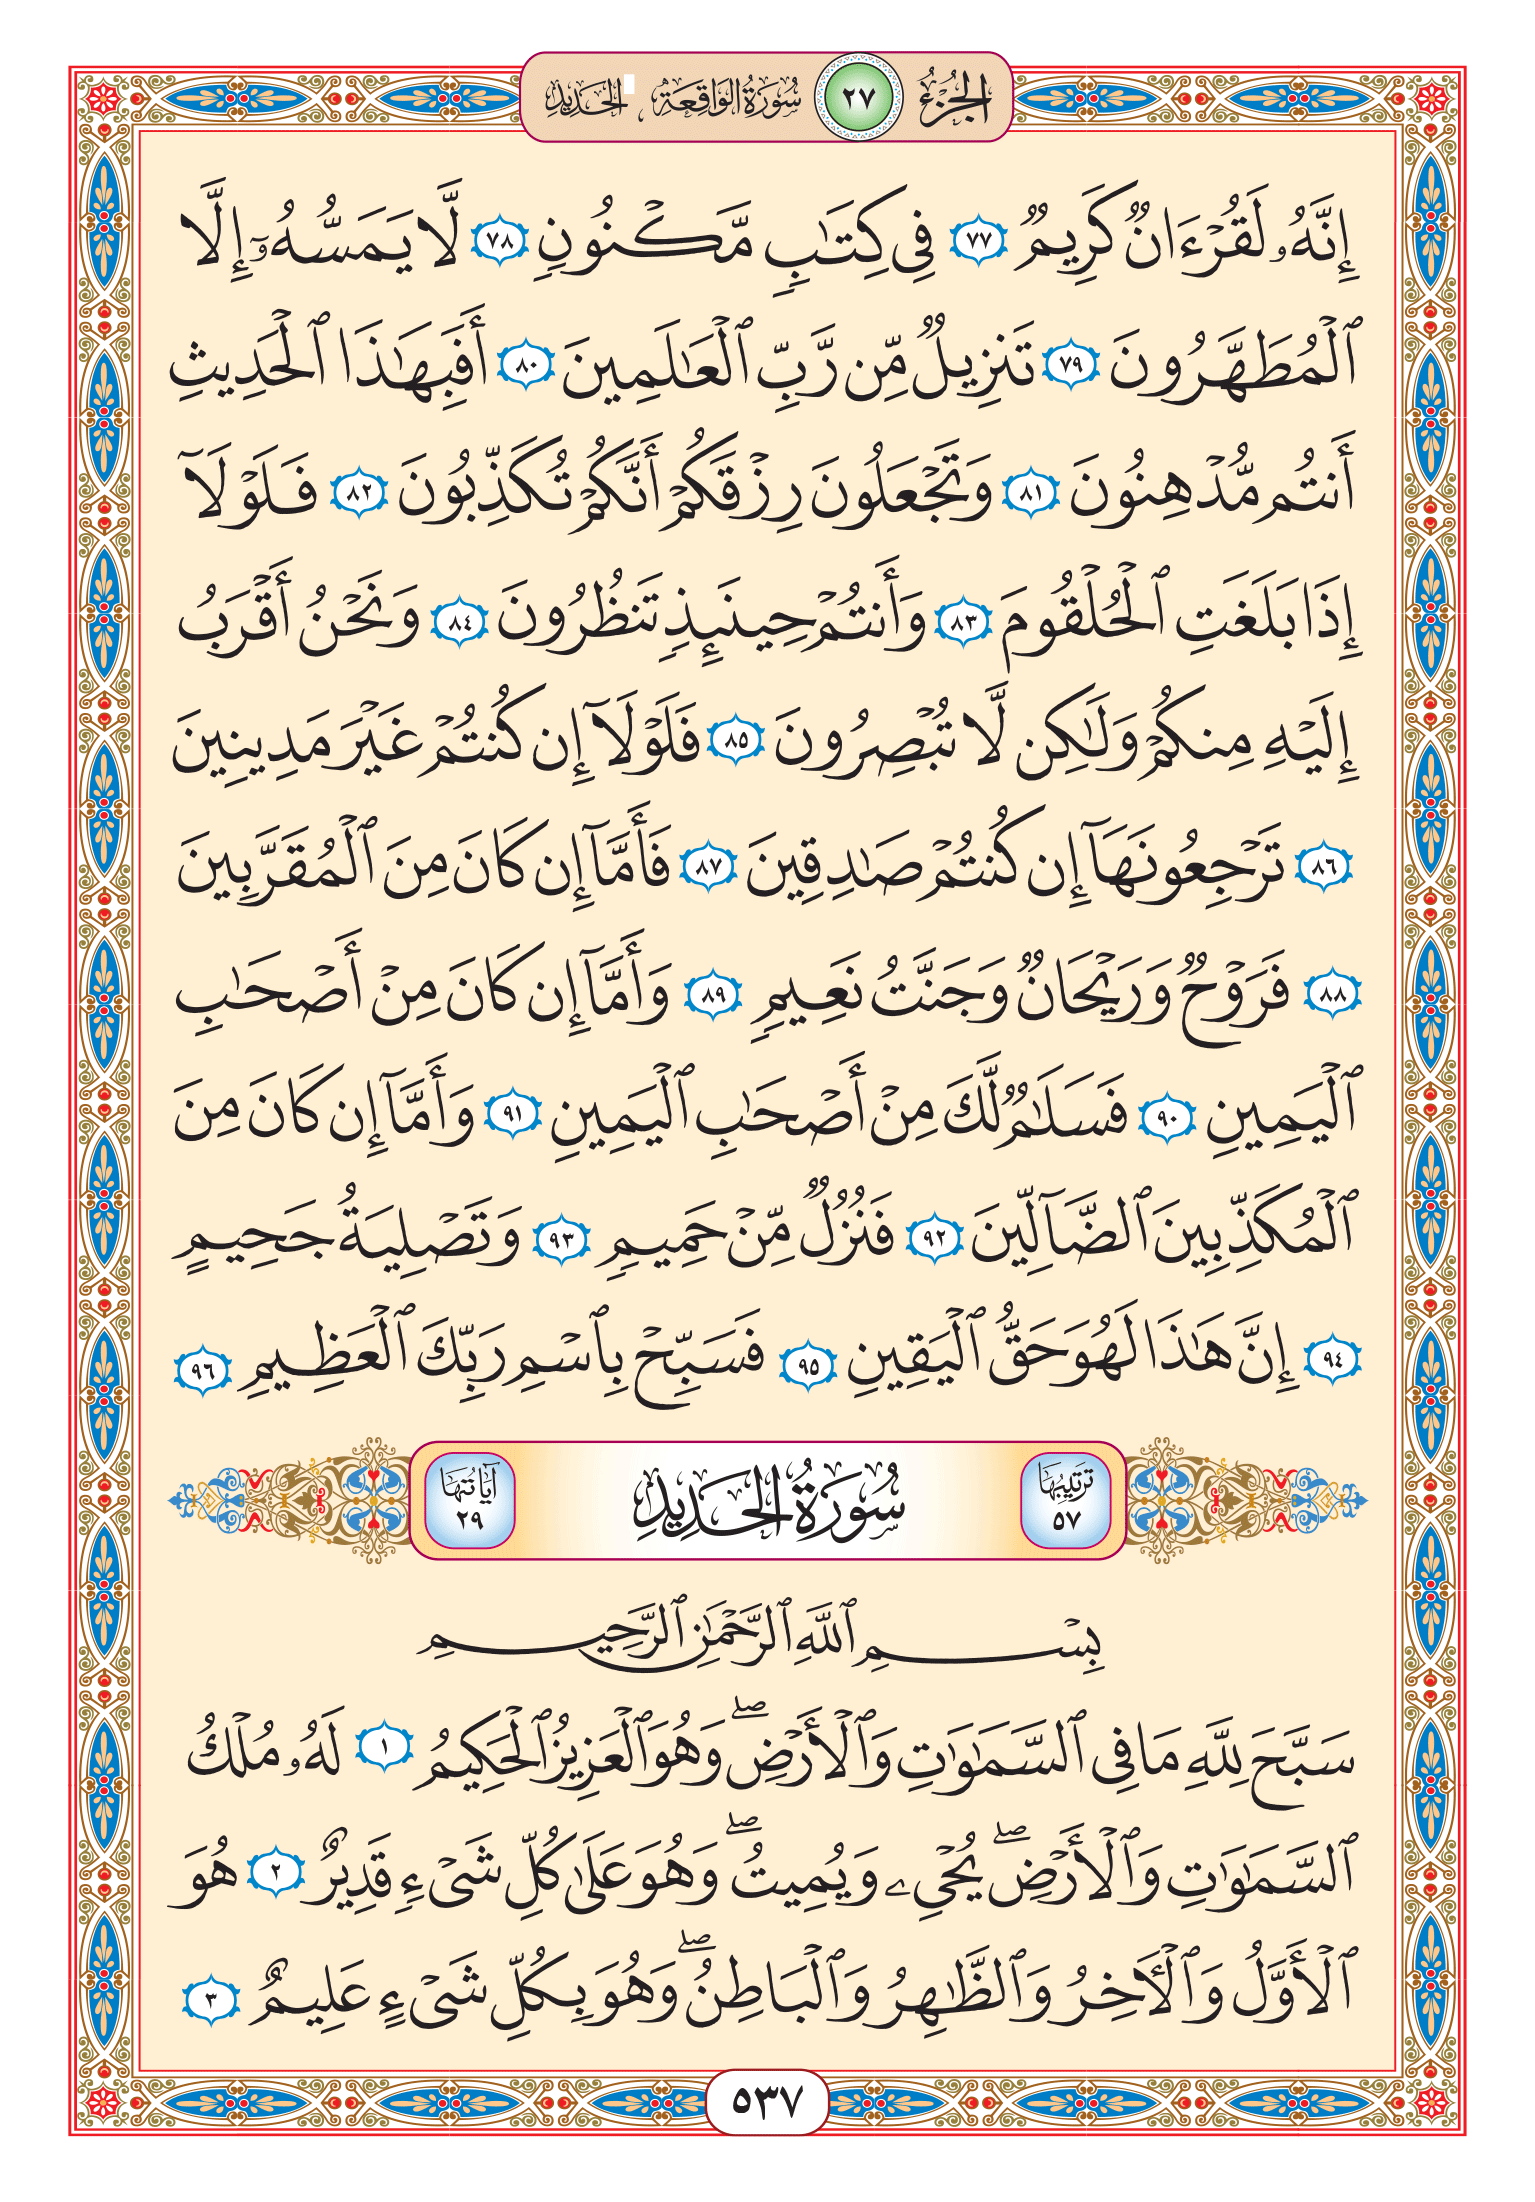 الجزء ٢٧ سورة الواقعة ، الحديد
إِنَّهُۥ لَقُرْءَانٌ كَرِيمٌ ٧٧ فِى كِتَٰبٍ مَّكْنُونٍ ٧٨ لَّا يَمَسُّهُۥٓ إِلَّا
ٱلْمُطَهَّرُونَ ٧٩ تَنزِيلٌ مِّن رَّبِّ ٱلْعَٰلَمِينَ ٨٠ أَفَبِهَٰذَا ٱلْحَدِيثِ
أَنتُم مُّدْهِنُونَ ٨١ وَتَجْعَلُونَ رِزْقَكُمْ أَنَّكُمْ تُكَذِّبُونَ ٨٢ فَلَوْلَآ
إِذَا بَلَغَتِ ٱلْحُلْقُومَ ٨٣ وَأَنتُمْ حِينَئِذٍ تَنظُرُونَ ٨٤ وَنَحْنُ أَقْرَبُ
إِلَيْهِ مِنكُمْ وَلَٰكِن لَّا تُبْصِرُونَ ٨٥ فَلَوْلَآ إِن كُنتُمْ غَيْرَ مَدِينِينَ
٨٦ تَرْجِعُونَهَآ إِن كُنتُمْ صَٰدِقِينَ ٨٧ فَأَمَّآ إِن كَانَ مِنَ ٱلْمُقَرَّبِينَ
٨٨ فَرَوْحٌ وَرَيْحَانٌ وَجَنَّتُ نَعِيمٍ ٨٩ وَأَمَّآ إِن كَانَ مِنْ أَصْحَٰبِ
ٱلْيَمِينِ ٩٠ فَسَلَٰمٌ لَّكَ مِنْ أَصْحَٰبِ ٱلْيَمِينِ ٩١ وَأَمَّآ إِن كَانَ مِنَ
ٱلْمُكَذِّبِينَ ٱلضَّآلِّينَ ٩٢ فَنُزُلٌ مِّنْ حَمِيمٍ ٩٣ وَتَصْلِيَةُ جَحِيمٍ
٩٤ إِنَّ هَٰذَا لَهُوَ حَقُّ ٱلْيَقِينِ ٩٥ فَسَبِّحْ بِٱسْمِ رَبِّكَ ٱلْعَظِيمِ ٩٦
ترتيبها ٥٧ سُورَةُ الحَدِيدِ آيَاتُهَا ٢٩
بِسْمِ ٱللَّهِ ٱلرَّحْمَٰنِ ٱلرَّحِيمِ
سَبَّحَ لِلَّهِ مَا فِى ٱلسَّمَٰوَٰتِ وَٱلْأَرْضِ ۖ وَهُوَ ٱلْعَزِيزُ ٱلْحَكِيمُ ١ لَهُۥ مُلْكُ
ٱلسَّمَٰوَٰتِ وَٱلْأَرْضِ ۖ يُحْىِۦ وَيُمِيتُ ۖ وَهُوَ عَلَىٰ كُلِّ شَىْءٍ قَدِيرٌ ٢ هُوَ
ٱلْأَوَّلُ وَٱلْءَاخِرُ وَٱلظَّٰهِرُ وَٱلْبَاطِنُ ۖ وَهُوَ بِكُلِّ شَىْءٍ عَلِيمٌ ٣
٥٣٧